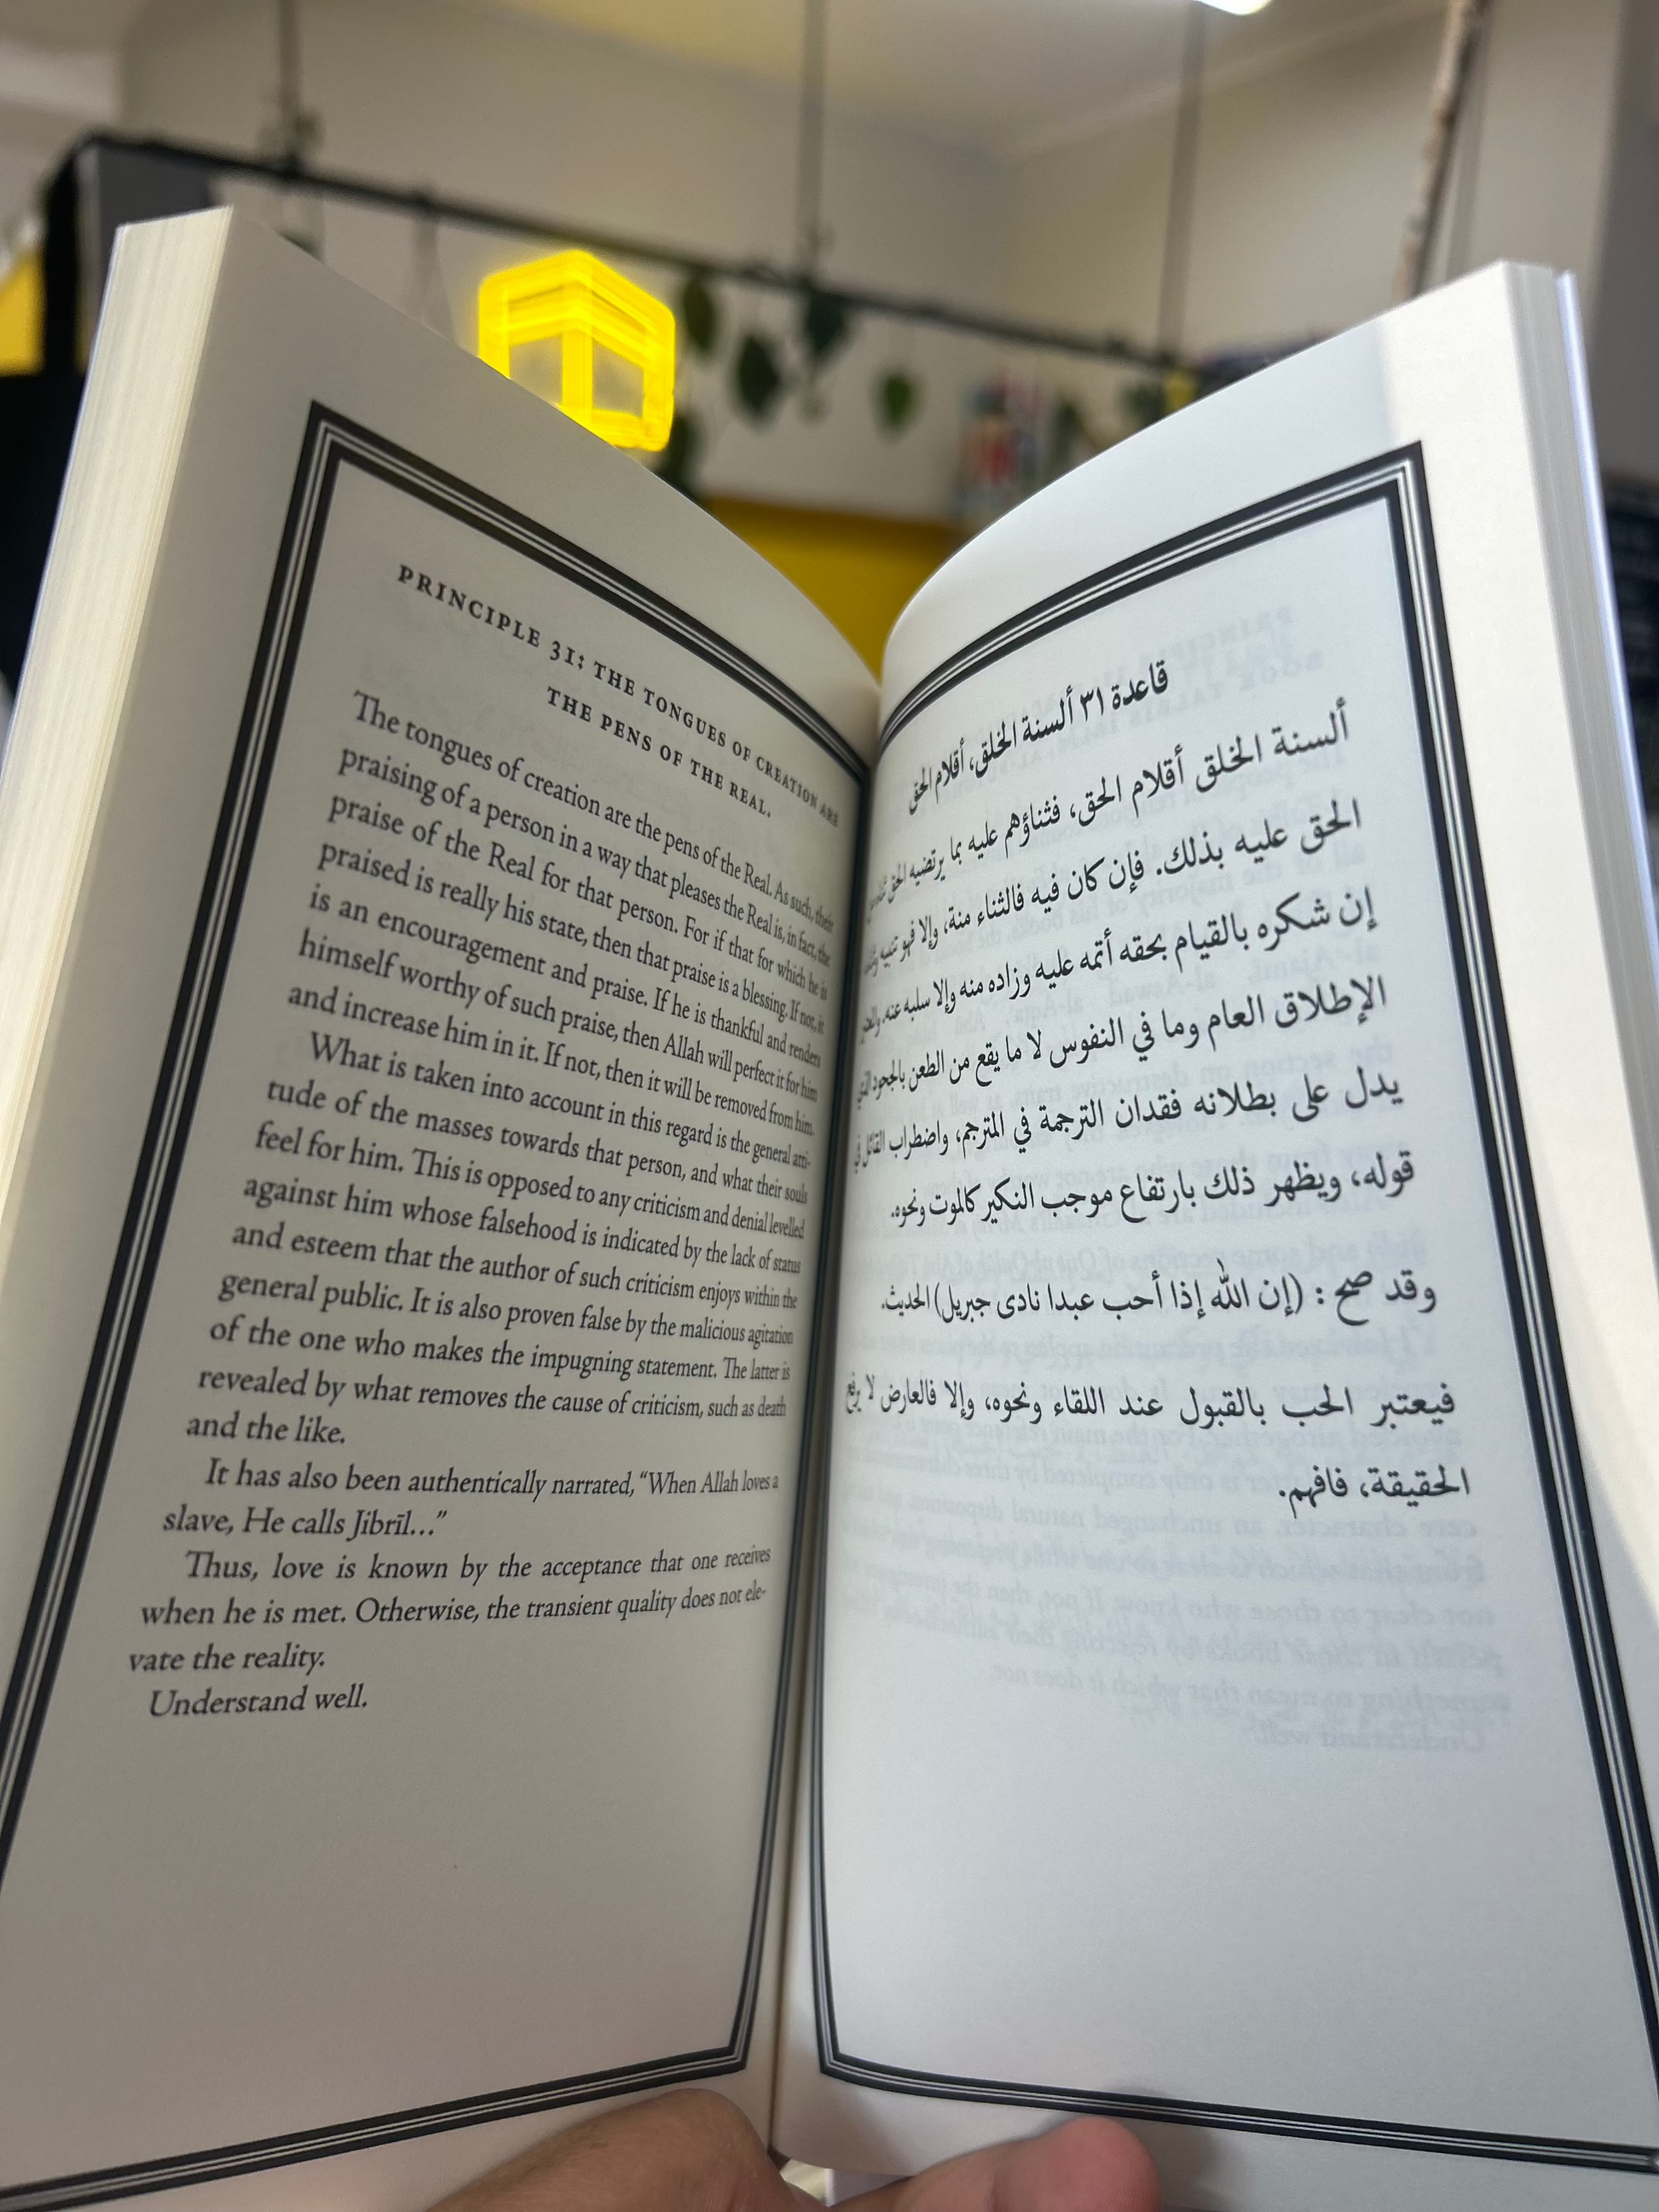 PRINCIPLE 31: THE TONGUES OF CREATION ARE
THE PENS OF THE REAL.
The tongues of creation are the pens of the Real. As such, their
praising of a person in a way that pleases the Real is, in fact, the
praise of the Real for that person. For if that for which he is
praised is really his state, then that praise is a blessing. If not, it
is an encouragement and praise. If he is thankful and renders
himself worthy of such praise, then Allah will perfect it for him
and increase him in it. If not, then it will be removed from him.
What is taken into account in this regard is the general atti-
tude of the masses towards that person, and what their souls
feel for him. This is opposed to any criticism and denial levelled
against him whose falsehood is indicated by the lack of status
and esteem that the author of such criticism enjoys within the
general public. It is also proven false by the malicious agitation
of the one who makes the impugning statement. The latter is
revealed by what removes the cause of criticism, such as death
and the like.
It has also been authentically narrated, “When Allah loves a
slave, He calls Jibrīl...”
Thus, love is known by the acceptance that one receives
when he is met. Otherwise, the transient quality does not ele-
vate the reality.
Understand well.
قاعدة ٣١ ألسنة الخلق، أقلام الحق
ألسنة الخلق أقلام الحق، فثناؤهم عليه بما يرتضيه الحق
الحق عليه بذلك. فإن كان فيه فالثناء منة، وإلا فهو تنبيه
إن شكره بالقيام بحقه أتمه عليه وزاده منه وإلا سلبه عنه،
الإطلاق العام وما في النفوس لا ما يقع من الطعن بالجحود
يدل على بطلانه فقدان الترجمة في المترجم، واضطراب القائل في
قوله، ويظهر ذلك بارتفاع موجب النكير كالموت ونحوه.
وقد صح : (إن الله إذا أحب عبدا نادى جبريل) الحديث.
فيعتبر الحب بالقبول عند اللقاء ونحوه، وإلا فالعارض لا يرفع
الحقيقة، فافهم.